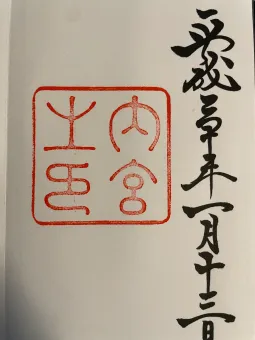 平成三十年一月十三日
内宮
之印